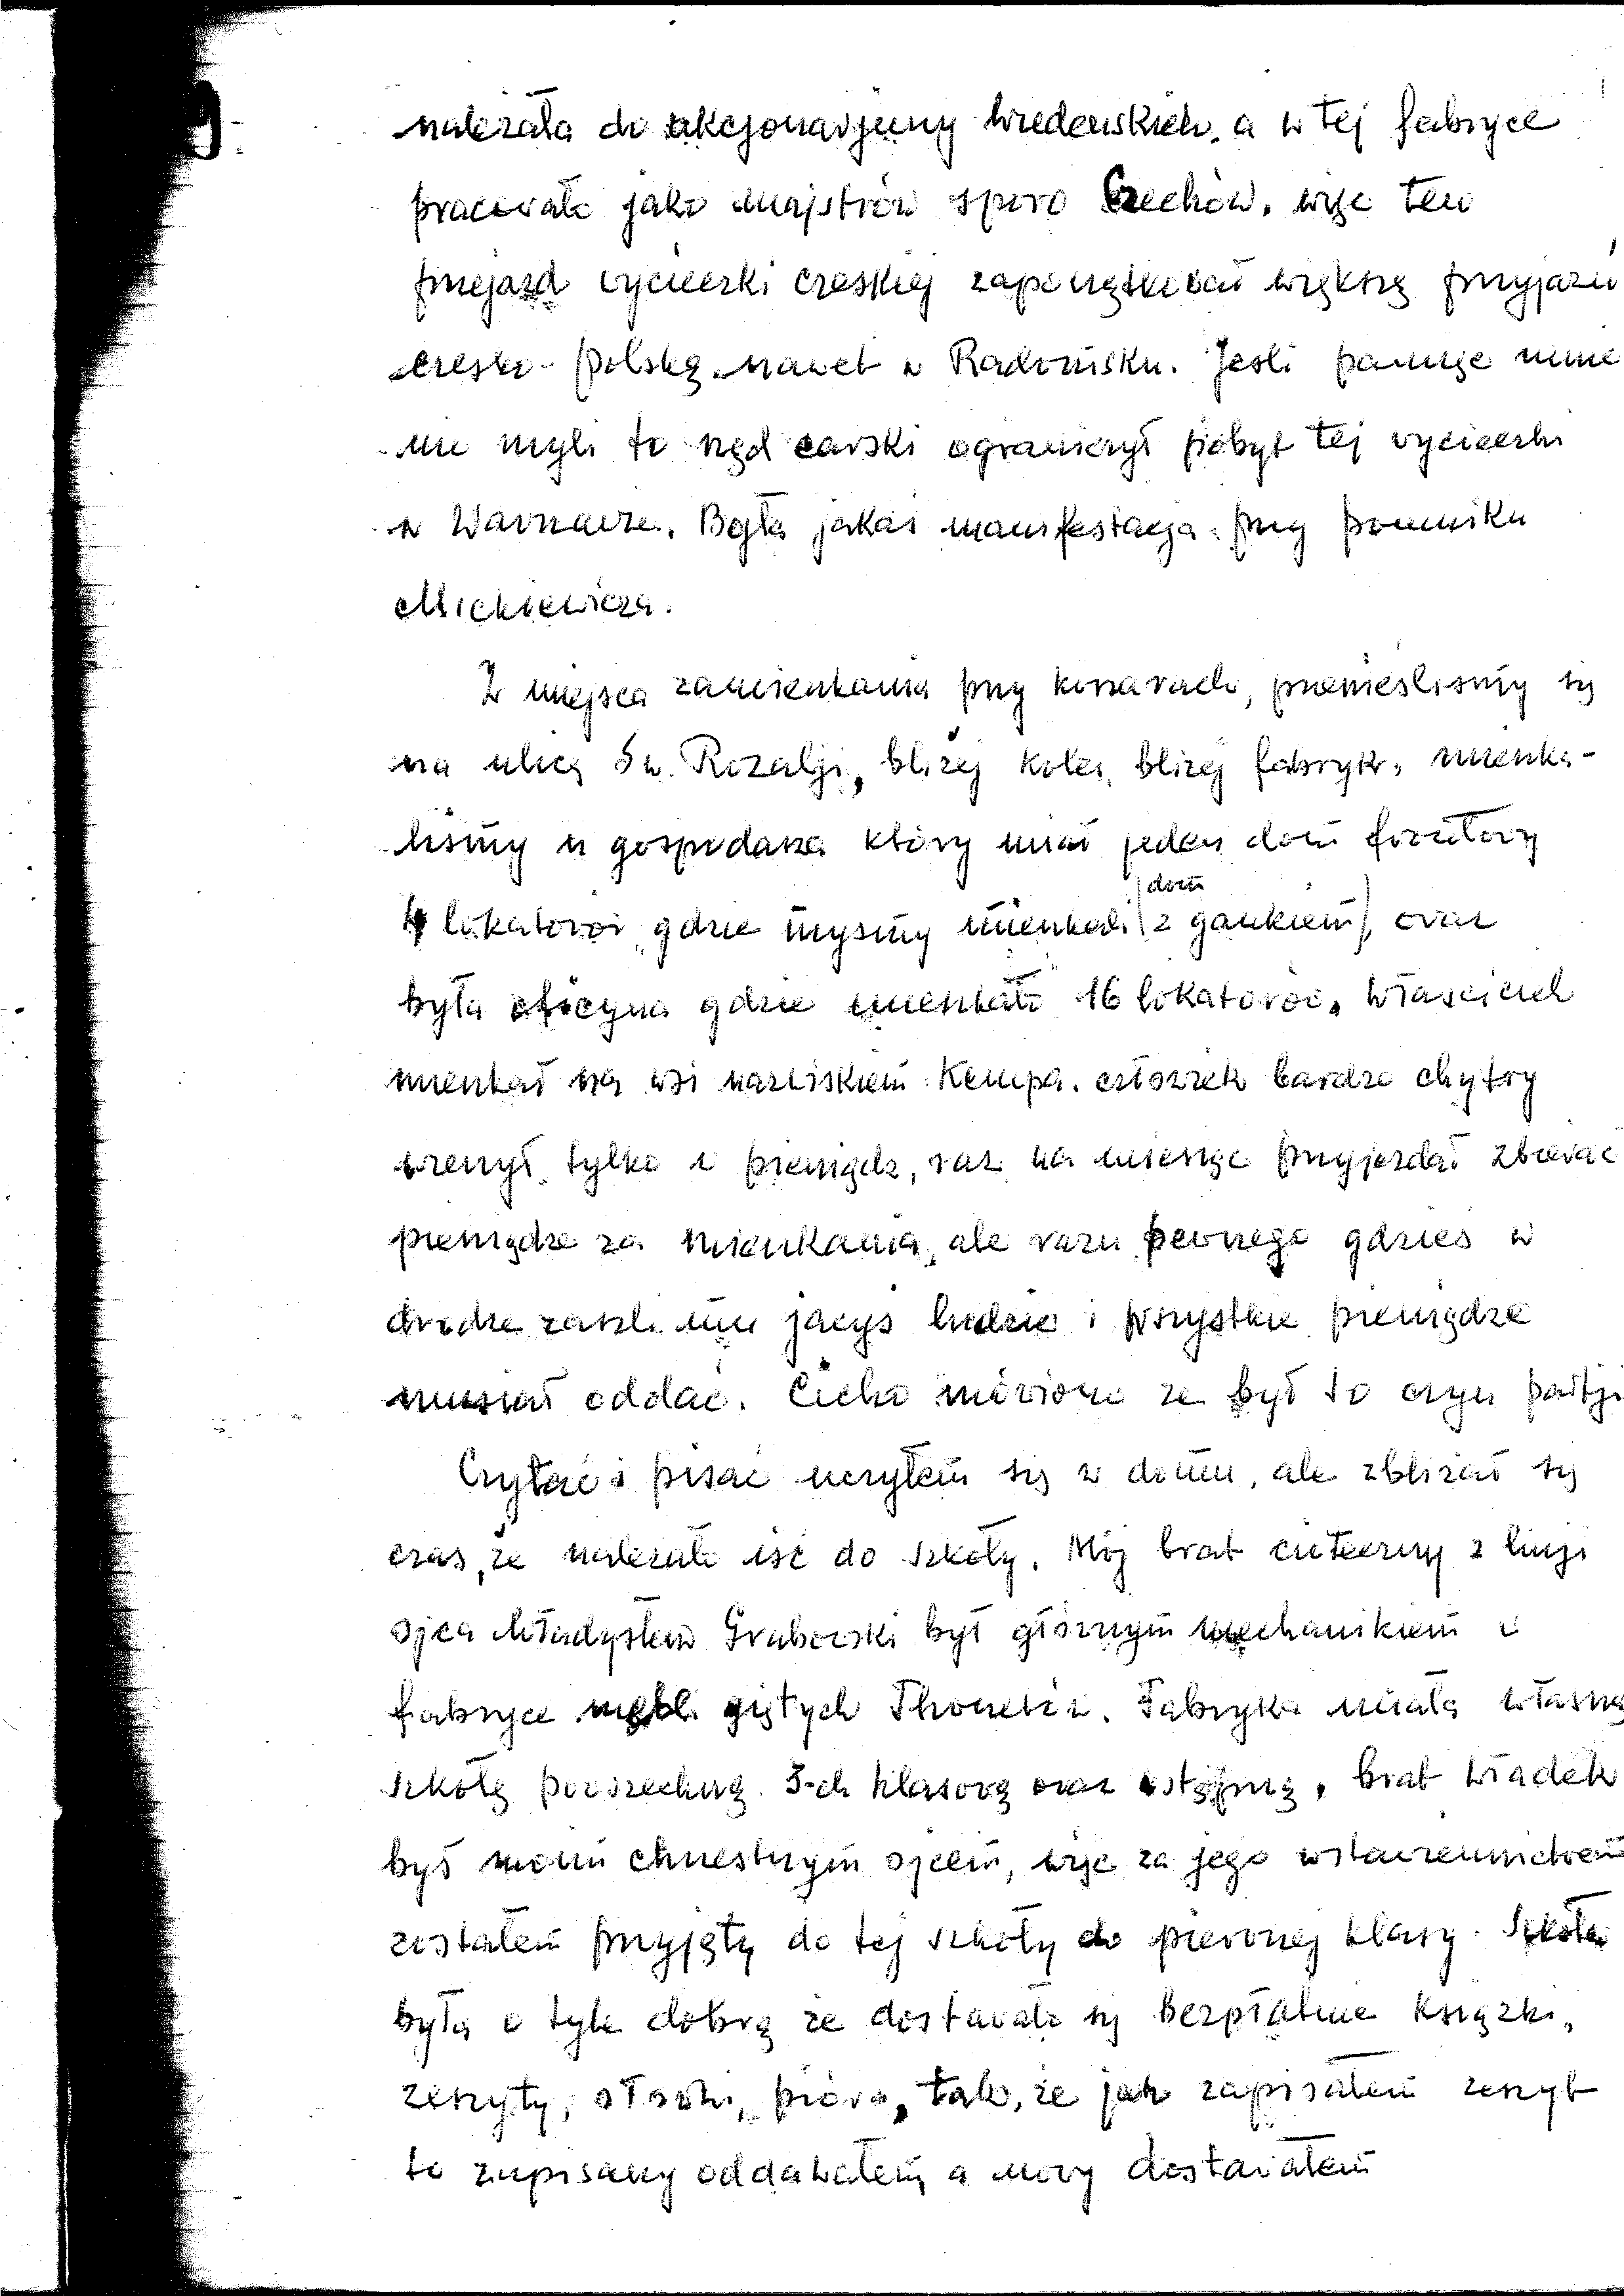 należała do akcjonarjuszy wiedeńskich, a w tej fabryce
pracowało jako majstrów sporo Czechów, więc ten
przejazd wycieczki czeskiej zapoczątkował większą przyjaźń
czesko-polską nawet w Radomsku. Jeśli pamięć mnie
nie myli to rząd carski ograniczył pobyt tej wycieczki
w Warszawie. Była jakaś manifestacja przy pomniku
Mickiewicza.
Z miejsca zamieszkania przy koszarach, przenieśliśmy się
na ulicę Św. Rozalji, bliżej kolei, bliżej fabryk, mieszka-
liśmy u gospodarza który miał jeden dom frontowy
4 lokatorów gdzie myśmy mieszkali (dom z gankiem), oraz
była oficyna gdzie mieszkało 16 lokatorów. Właściciel
mieszkał na wsi nazwiskiem Kempa. człowiek bardzo chytry
wierzył tylko w pieniądz, raz na miesiąc przyjeżdał zbierać
pieniądze za mieszkania, ale razu pewnego gdzieś w
drodze zaszli mu jacyś ludzie i wszystkie pieniądze
musiał oddać. Cicho mówiono że był to czyn partji
Czytać i pisać uczyłem się w domu, ale zbliżał się
czas, że należało iść do szkoły. Mój brat cioteczny z linji
ojca Władysław Grabowski był głównym mechanikiem w
fabryce mebli giętych Thonetów. Fabryka miała własną
szkołę powszechną 3-ch klasową oraz wstępną, brat Władek
był moim chrzestnym ojcem, więc za jego wstawiennictwem
zostałem przyjęty do tej szkoły do pierwszej klasy. Szkoła
była o tyle dobrą że dostawało się bezpłatnie książki,
zeszyty, ołówki, pióra, tak, że jak zapisałem zeszyt
to zapisany oddawałem, a nowy dostawałem